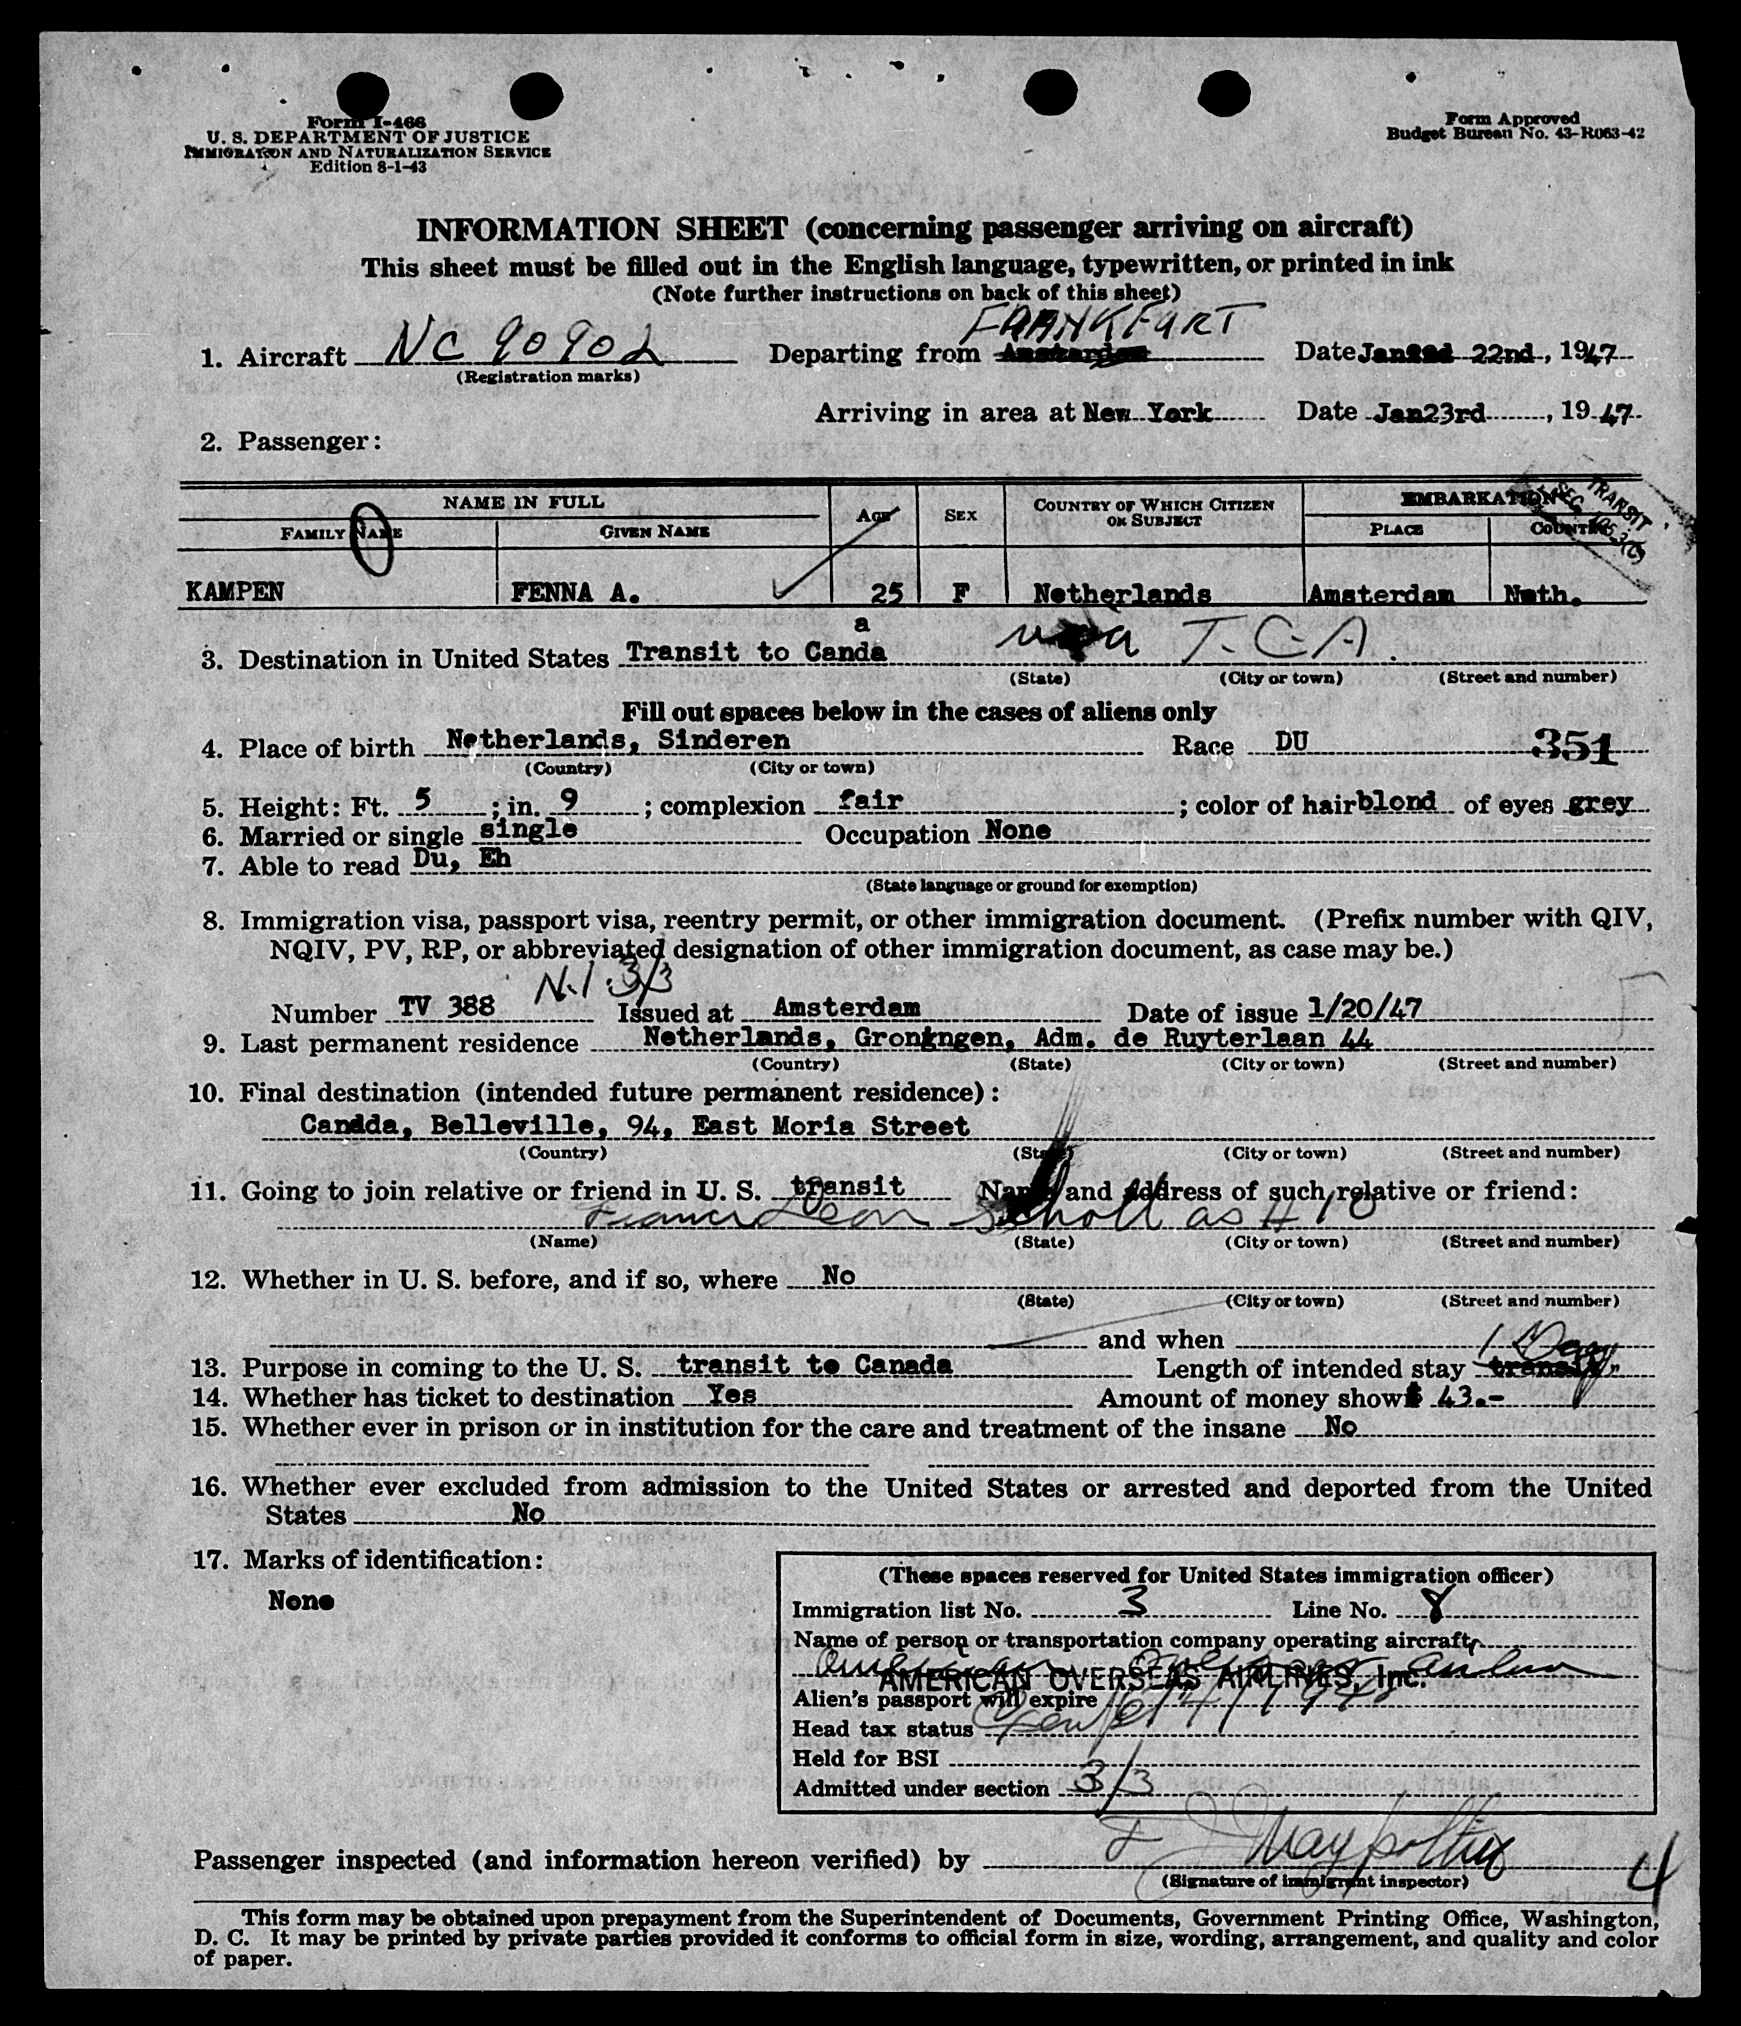 Form I-466
U. S. DEPARTMENT OF JUSTICE
IMMIGRATION AND NATURALIZATION SERVICE
Edition 8-1-43
Form Approved
Budget Bureau No. 43-R063-42
INFORMATION SHEET (concerning passenger arriving on aircraft)
This sheet must be filled out in the English language, typewritten, or printed in ink
(Note further instructions on back of this sheet)
FRANKFURT
1. Aircraft NC 90902 Departing from Amsterdam Date 22nd, 1947
(Registration marks)
Arriving in area at New York Date Jan23rd, 1947
2. Passenger:
NAME IN FULL AGE SEX COUNTRY OF WHICH CITIZEN OR SUBJECT EMBARKATION
FAMILY NAME GIVEN NAME PLACE COUNTRY
TRANSIT
SEC.
KAMPEN FENNA A. 25 F Netherlands Amsterdam Neth.
a
3. Destination in United States Transit to Canda via T.C.A.
(State) (City or town) (Street and number)
Fill out spaces below in the cases of aliens only
4. Place of birth Netherlands, Sinderen Race DU 351
(Country) (City or town)
5. Height: Ft. 5; in. 9; complexion fair; color of hair blond of eyes grey
6. Married or single single Occupation None
7. Able to read Du, Eh
(State language or ground for exemption)
8. Immigration visa, passport visa, reentry permit, or other immigration document. (Prefix number with QIV,
NQIV, PV, RP, or abbreviated designation of other immigration document, as case may be.)
N.I. 3/3
Number TV 388 Issued at Amsterdam Date of issue 1/20/47
9. Last permanent residence Netherlands, Groningen, Adm. de Ruyterlaan 44
(Country) (State) (City or town) (Street and number)
10. Final destination (intended future permanent residence):
Canada, Belleville, 94, East Moria Street
(Country) (State) (City or town) (Street and number)
11. Going to join relative or friend in U. S. transit Name and address of such relative or friend:
as # 10
(Name) (State) (City or town) (Street and number)
12. Whether in U. S. before, and if so, where No
(State) (City or town) (Street and number)
and when
1 Day
13. Purpose in coming to the U. S. transit to Canada Length of intended stay transit
14. Whether has ticket to destination Yes Amount of money shown $ 43.-
15. Whether ever in prison or in institution for the care and treatment of the insane No
16. Whether ever excluded from admission to the United States or arrested and deported from the United
States No
17. Marks of identification:
None
(These spaces reserved for United States immigration officer)
Immigration list No. 3 Line No. 8
Name of person or transportation company operating aircraft
American Overseas Airlines
AMERICAN OVERSEAS AIRLINES, Inc.
Alien's passport will expire
Head tax status
Held for BSI
Admitted under section 3/3
Passenger inspected (and information hereon verified) by
(Signature of immigrant inspector)
4
This form may be obtained upon prepayment from the Superintendent of Documents, Government Printing Office, Washington,
D. C. It may be printed by private parties provided it conforms to official form in size, wording, arrangement, and quality and color
of paper.